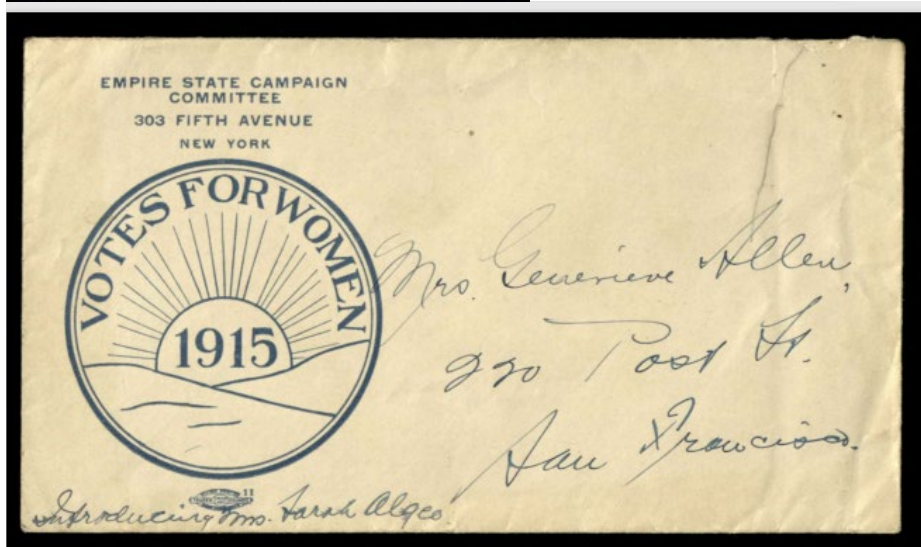 EMPIRE STATE CAMPAIGN
COMMITTEE
303 FIFTH AVENUE
NEW YORK
VOTES FOR WOMEN
1915
Mrs. Genevieve Allen,
220 Post St.
San Francisco.
11
Introducing Mrs. Sarah Algeo